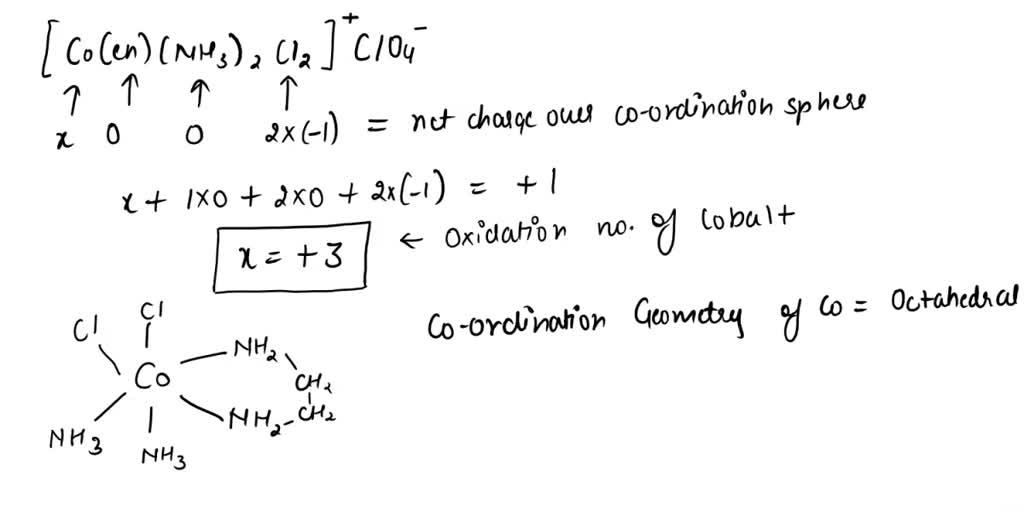 [Co(en)(NH3)2Cl2]+ClO4-
x 0 0 2x(-1) = net charge over co-ordination sphere
x + 1x0 + 2x0 + 2x(-1) = +1
x = +3 ← Oxidation no. of Cobalt
Co-ordination Geometry of Co = Octahedral
Cl Cl
NH2
Co CH2
NH2-CH2
NH3
NH3